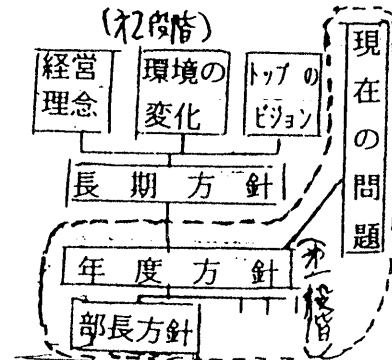 (才2段階)
経営
理念
環境の
変化
トップの
ビジョン
現在の問題
長期方針
年度方針
(才一段階)
部長方針